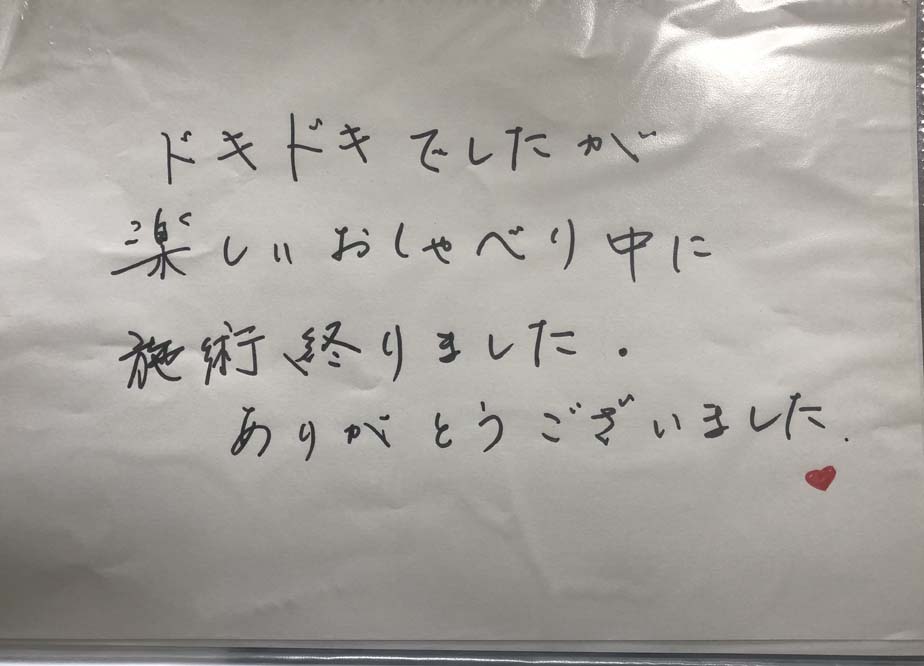 ドキドキでしたが
楽しいおしゃべり中に
施術終りました.
ありがとうございました.